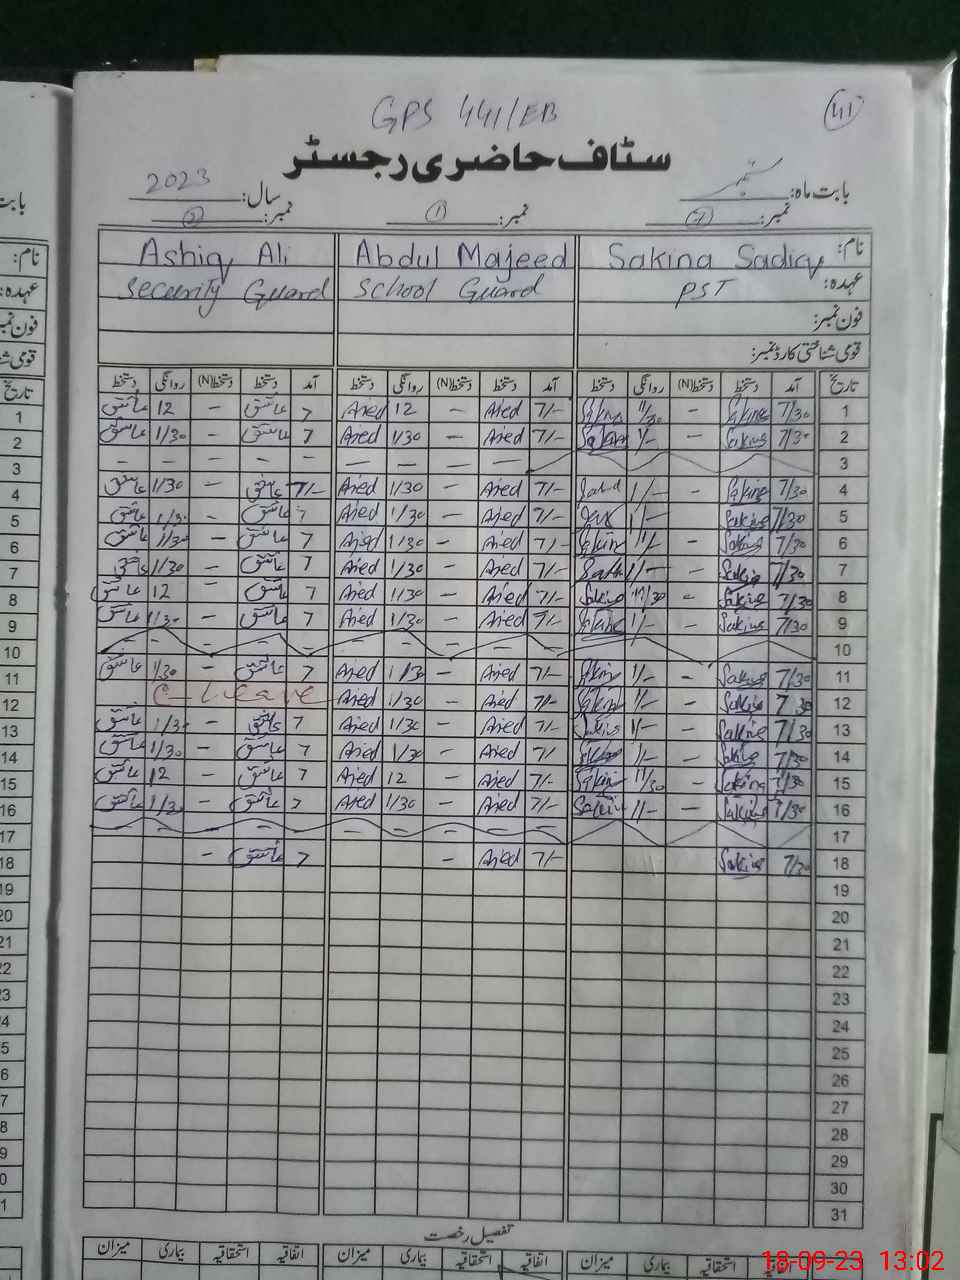 GPS 441/EB
41
سٹاف حاضری رجسٹر
بابت ماہ: ستمبر سال: 2023
نمبر: نمبر: 1 نمبر: 2
نام: Sakina Sadiq Abdul Majeed Ashiq Ali
عہدہ: PST School Guard Security Guard
فون نمبر:
قومی شناختی کارڈ نمبر:
تاریخ آمد دستخط دستخط(N) روانگی دستخط آمد دستخط دستخط(N) روانگی دستخط آمد دستخط دستخط(N) روانگی دستخط
1 7/30 Sakina - 11/30 Sakina 7/- - 12 7 عاشق - 12 عاشق
2 7/30 Sakina - 1/- 7/- - 1/30 7 عاشق - 1/30 عاشق
3 - - - - - - - - - -
4 7/30 Sakina - 1/- 7/- - 1/30 7/- عاشق - 1/30 عاشق
5 7/30 Sakina - 1/- 7/- - 1/30 7 عاشق - 1/30 عاشق
6 7/30 Sakina - 7/- - 1/30 7 عاشق - 1/30 عاشق
7 7/30 Sakina - 1/- 7/- - 1/30 7 عاشق - 1/30 عاشق
8 7/30 Sakina - 11/30 Sakina 7/- - 1/30 7 عاشق - 12 عاشق
9 7/30 Sakina - 1/- 7/- - 1/30 7 عاشق - 1/30 عاشق
10
11 7/30 Sakina - 1/- 7/- - 1/30 7 عاشق - 1/30 عاشق
12 7/30 Sakina - 1/- 7/- - 1/30 C-Leave
13 7/30 Sakina - 1/- 7/- - 1/30 7 عاشق - 1/30 عاشق
14 7/30 Sakina - 1/- 7/- - 1/30 7 عاشق - 1/30 عاشق
15 7/30 Sakina - 11/30 7/- - 12 7 عاشق - 12 عاشق
16 7/30 Sakina - 1/- 7/- - 1/30 7 عاشق - 1/30 عاشق
17
18 7/30 Sakina 7/- - 7 عاشق -
19
20
21
22
23
24
25
26
27
28
29
30
31
تفصیل رخصت
اتفاقیہ استحقاقیہ بیماری میزان اتفاقیہ استحقاقیہ بیماری میزان اتفاقیہ استحقاقیہ بیماری میزان
18-09-23 13:02